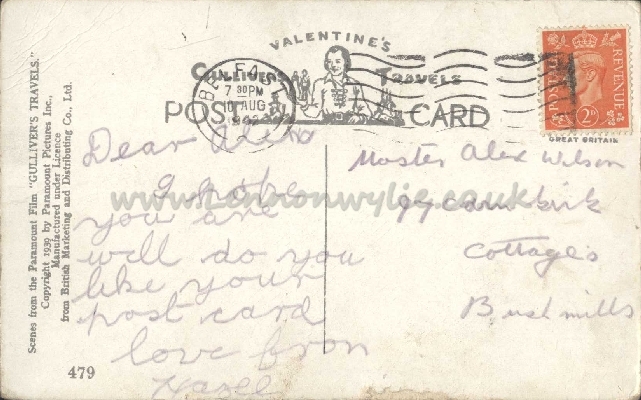 VALENTINE'S
GULLIVER'S TRAVELS
POST CARD
BELFAST
7 30PM
10 AUG
1942
POSTAGE REVENUE
2D
GREAT BRITAIN
Scenes from the Paramount Film "GULLIVER'S TRAVELS."
Copyright 1939 by Paramount Pictures Inc.,
Manufactured under Licence
from British Marketing and Distributing Co., Ltd.
Dear
I hope
you are
well do you
like your
post card
love from
Hazel
479
Master Alex Wilson
kirk
Cottages
Bushmills